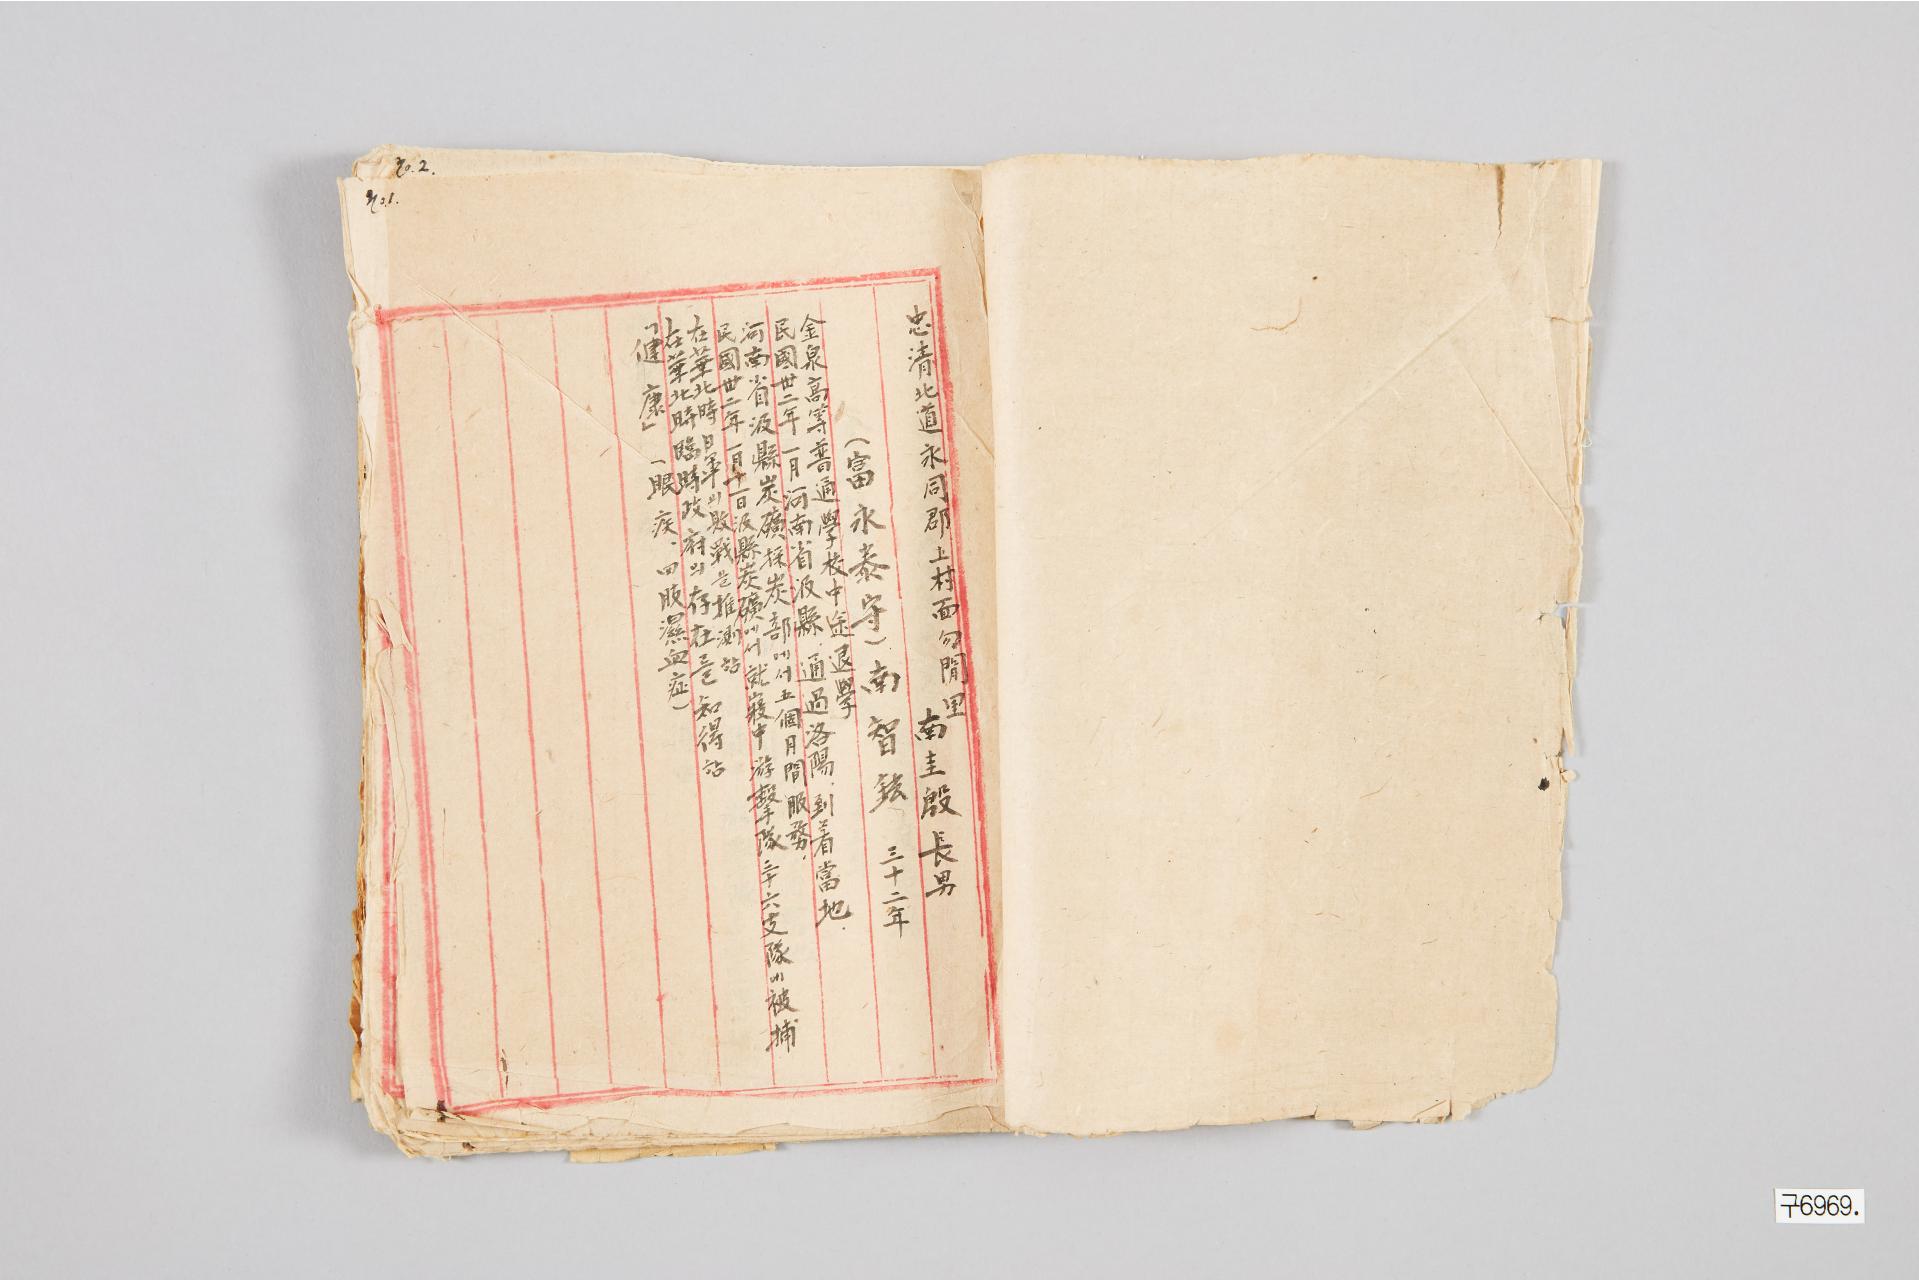 No.2.
No.1.
忠清北道永同郡上村面勿閒里
南圭殷長男
(富永泰守)南智鉉 三十二年
金泉高等普通學校中途退學
民國卅二年一月河南省汲縣、通過洛陽、到着當地.
河南省汲縣炭礦採炭部에서五個月間服務.
民國卅二年一月十一日汲縣炭礦에서就寢中游擊隊三十六支隊에被捕
在華北時日軍의敗戰을推測함
在華北時臨時政府의存在를知得함
「健康」(眼疾、四肢濕血症)
구6969.